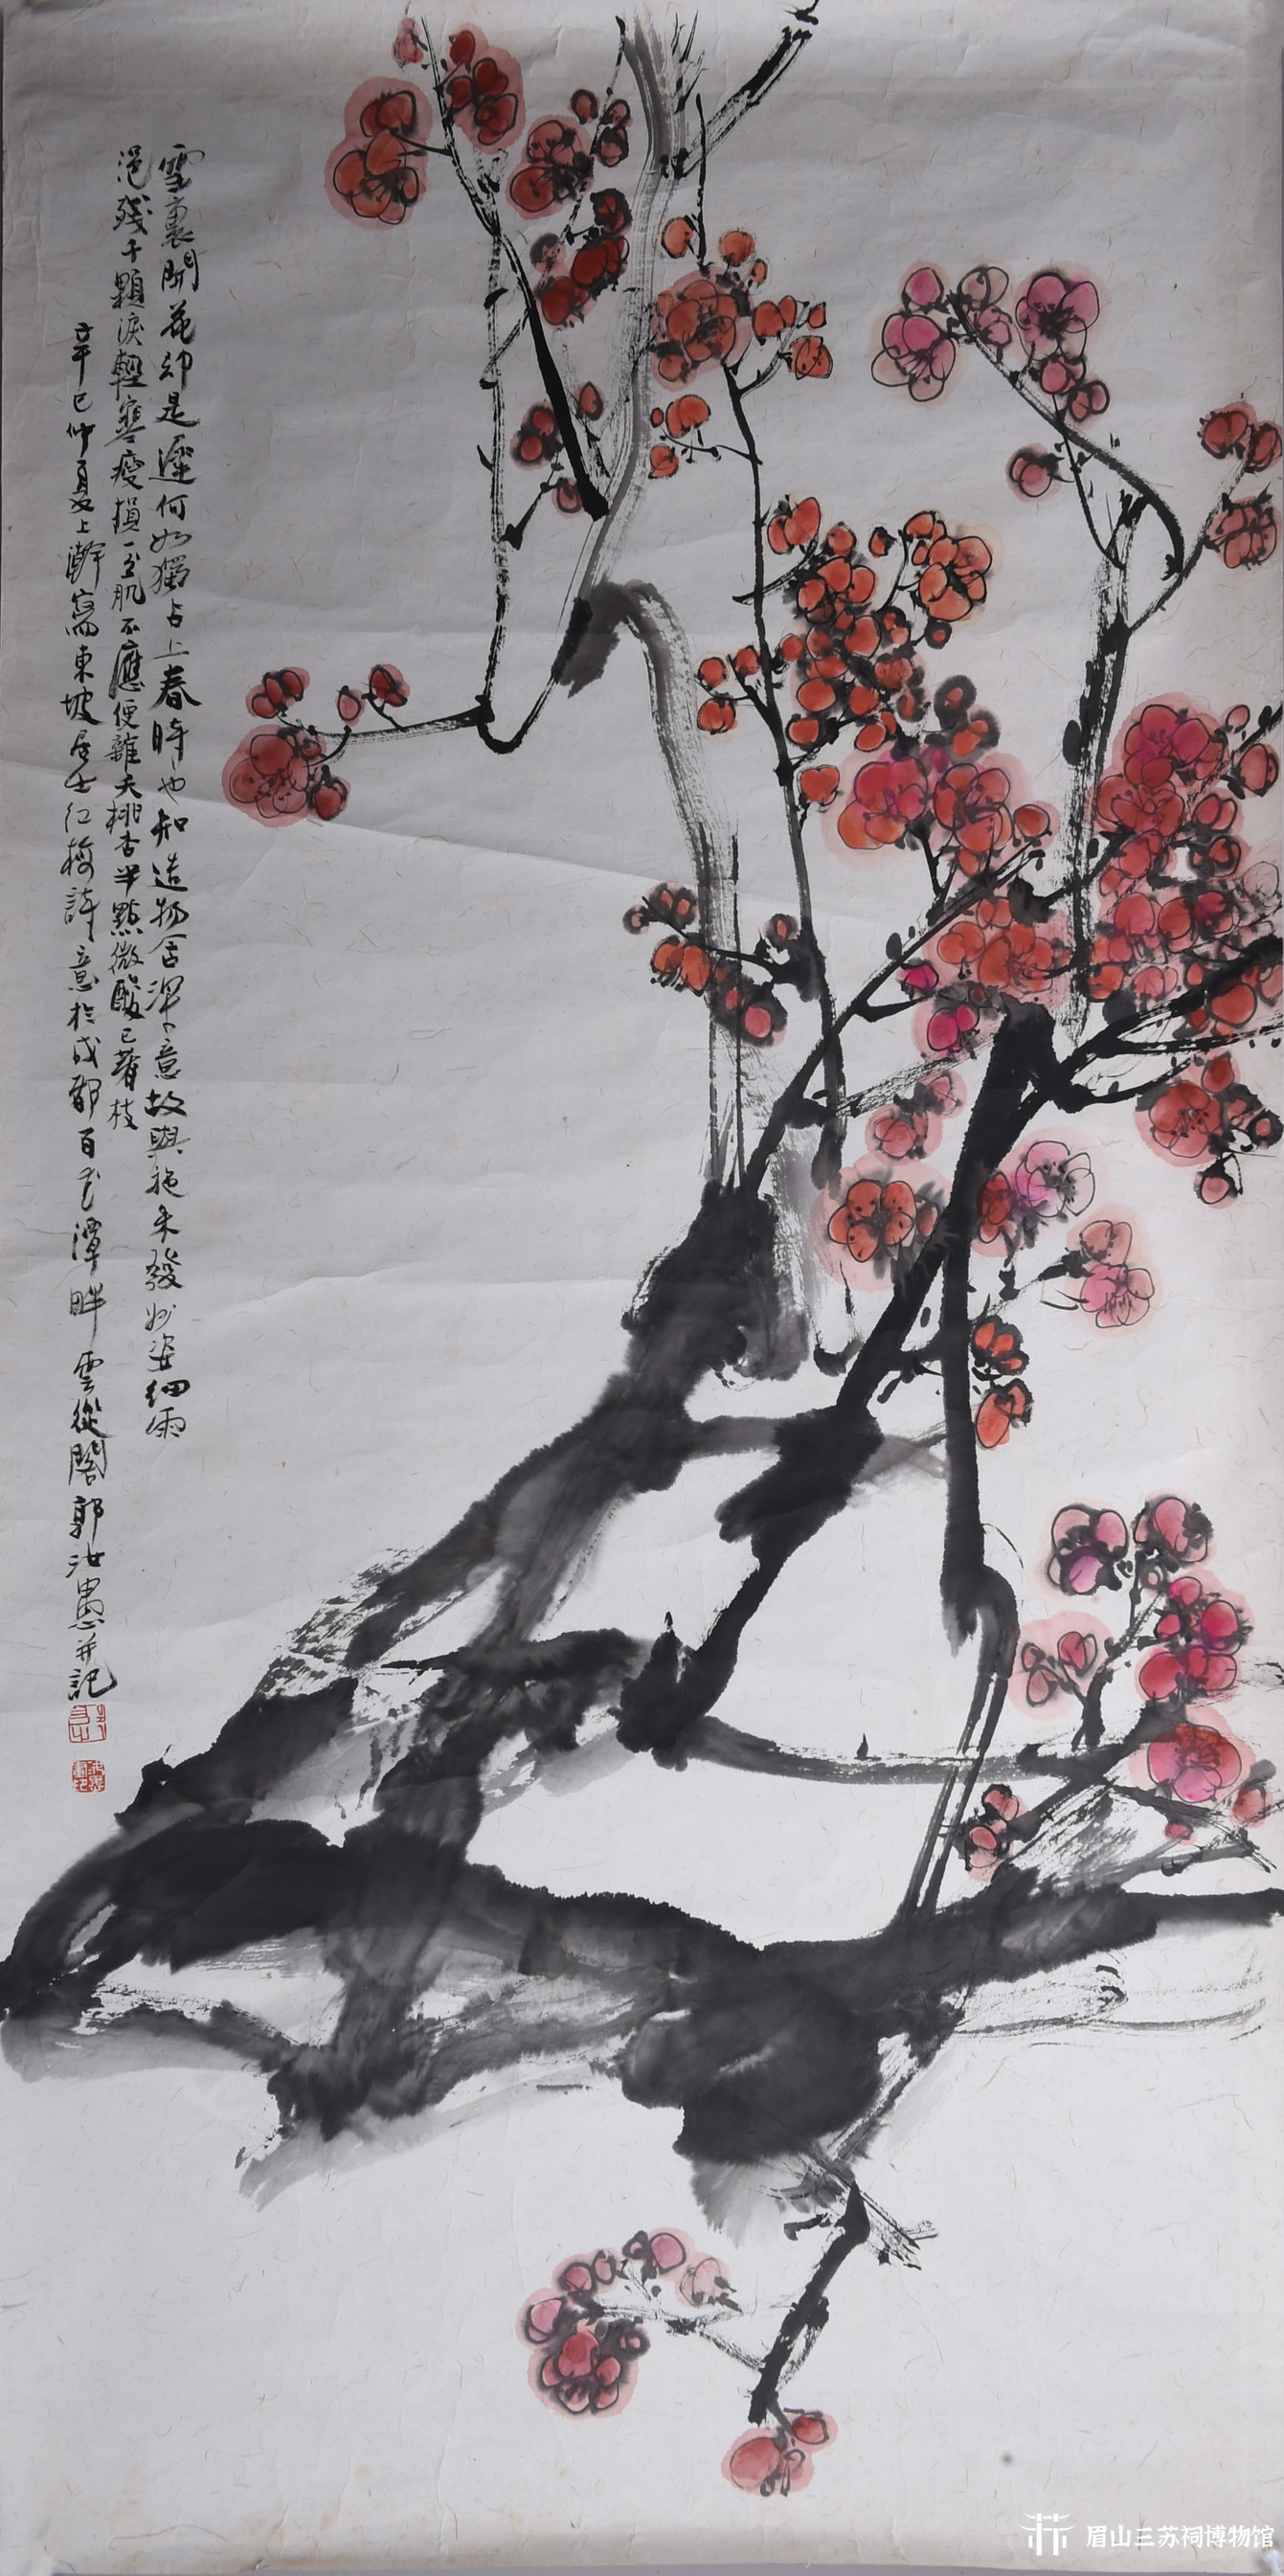 雪裏開花却是遲何如獨占上春時也知造物含深意故與施朱發妙姿細雨
浥殘千顆淚輕寒瘦損一分肌不應便雜夭桃杏半點微酸已著枝
辛巳仲夏上澣寫東坡居士红梅詩意於成都百花潭畔 雲從閣郭汝愚并記
眉山三苏祠博物馆